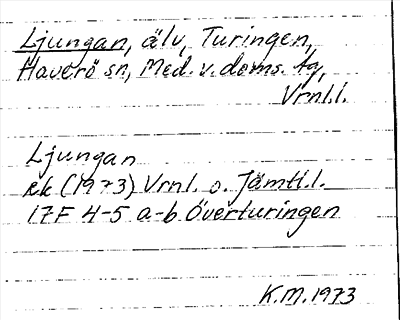 Ljungan, älv, Turingen,
Haverö sn, Med. v. doms. tg,
Vrnl.l.
Ljungan
ek (1973) Vrnl. o. Jämtl.l.
17F 4-5 a-b Överturingen
K.M. 1973